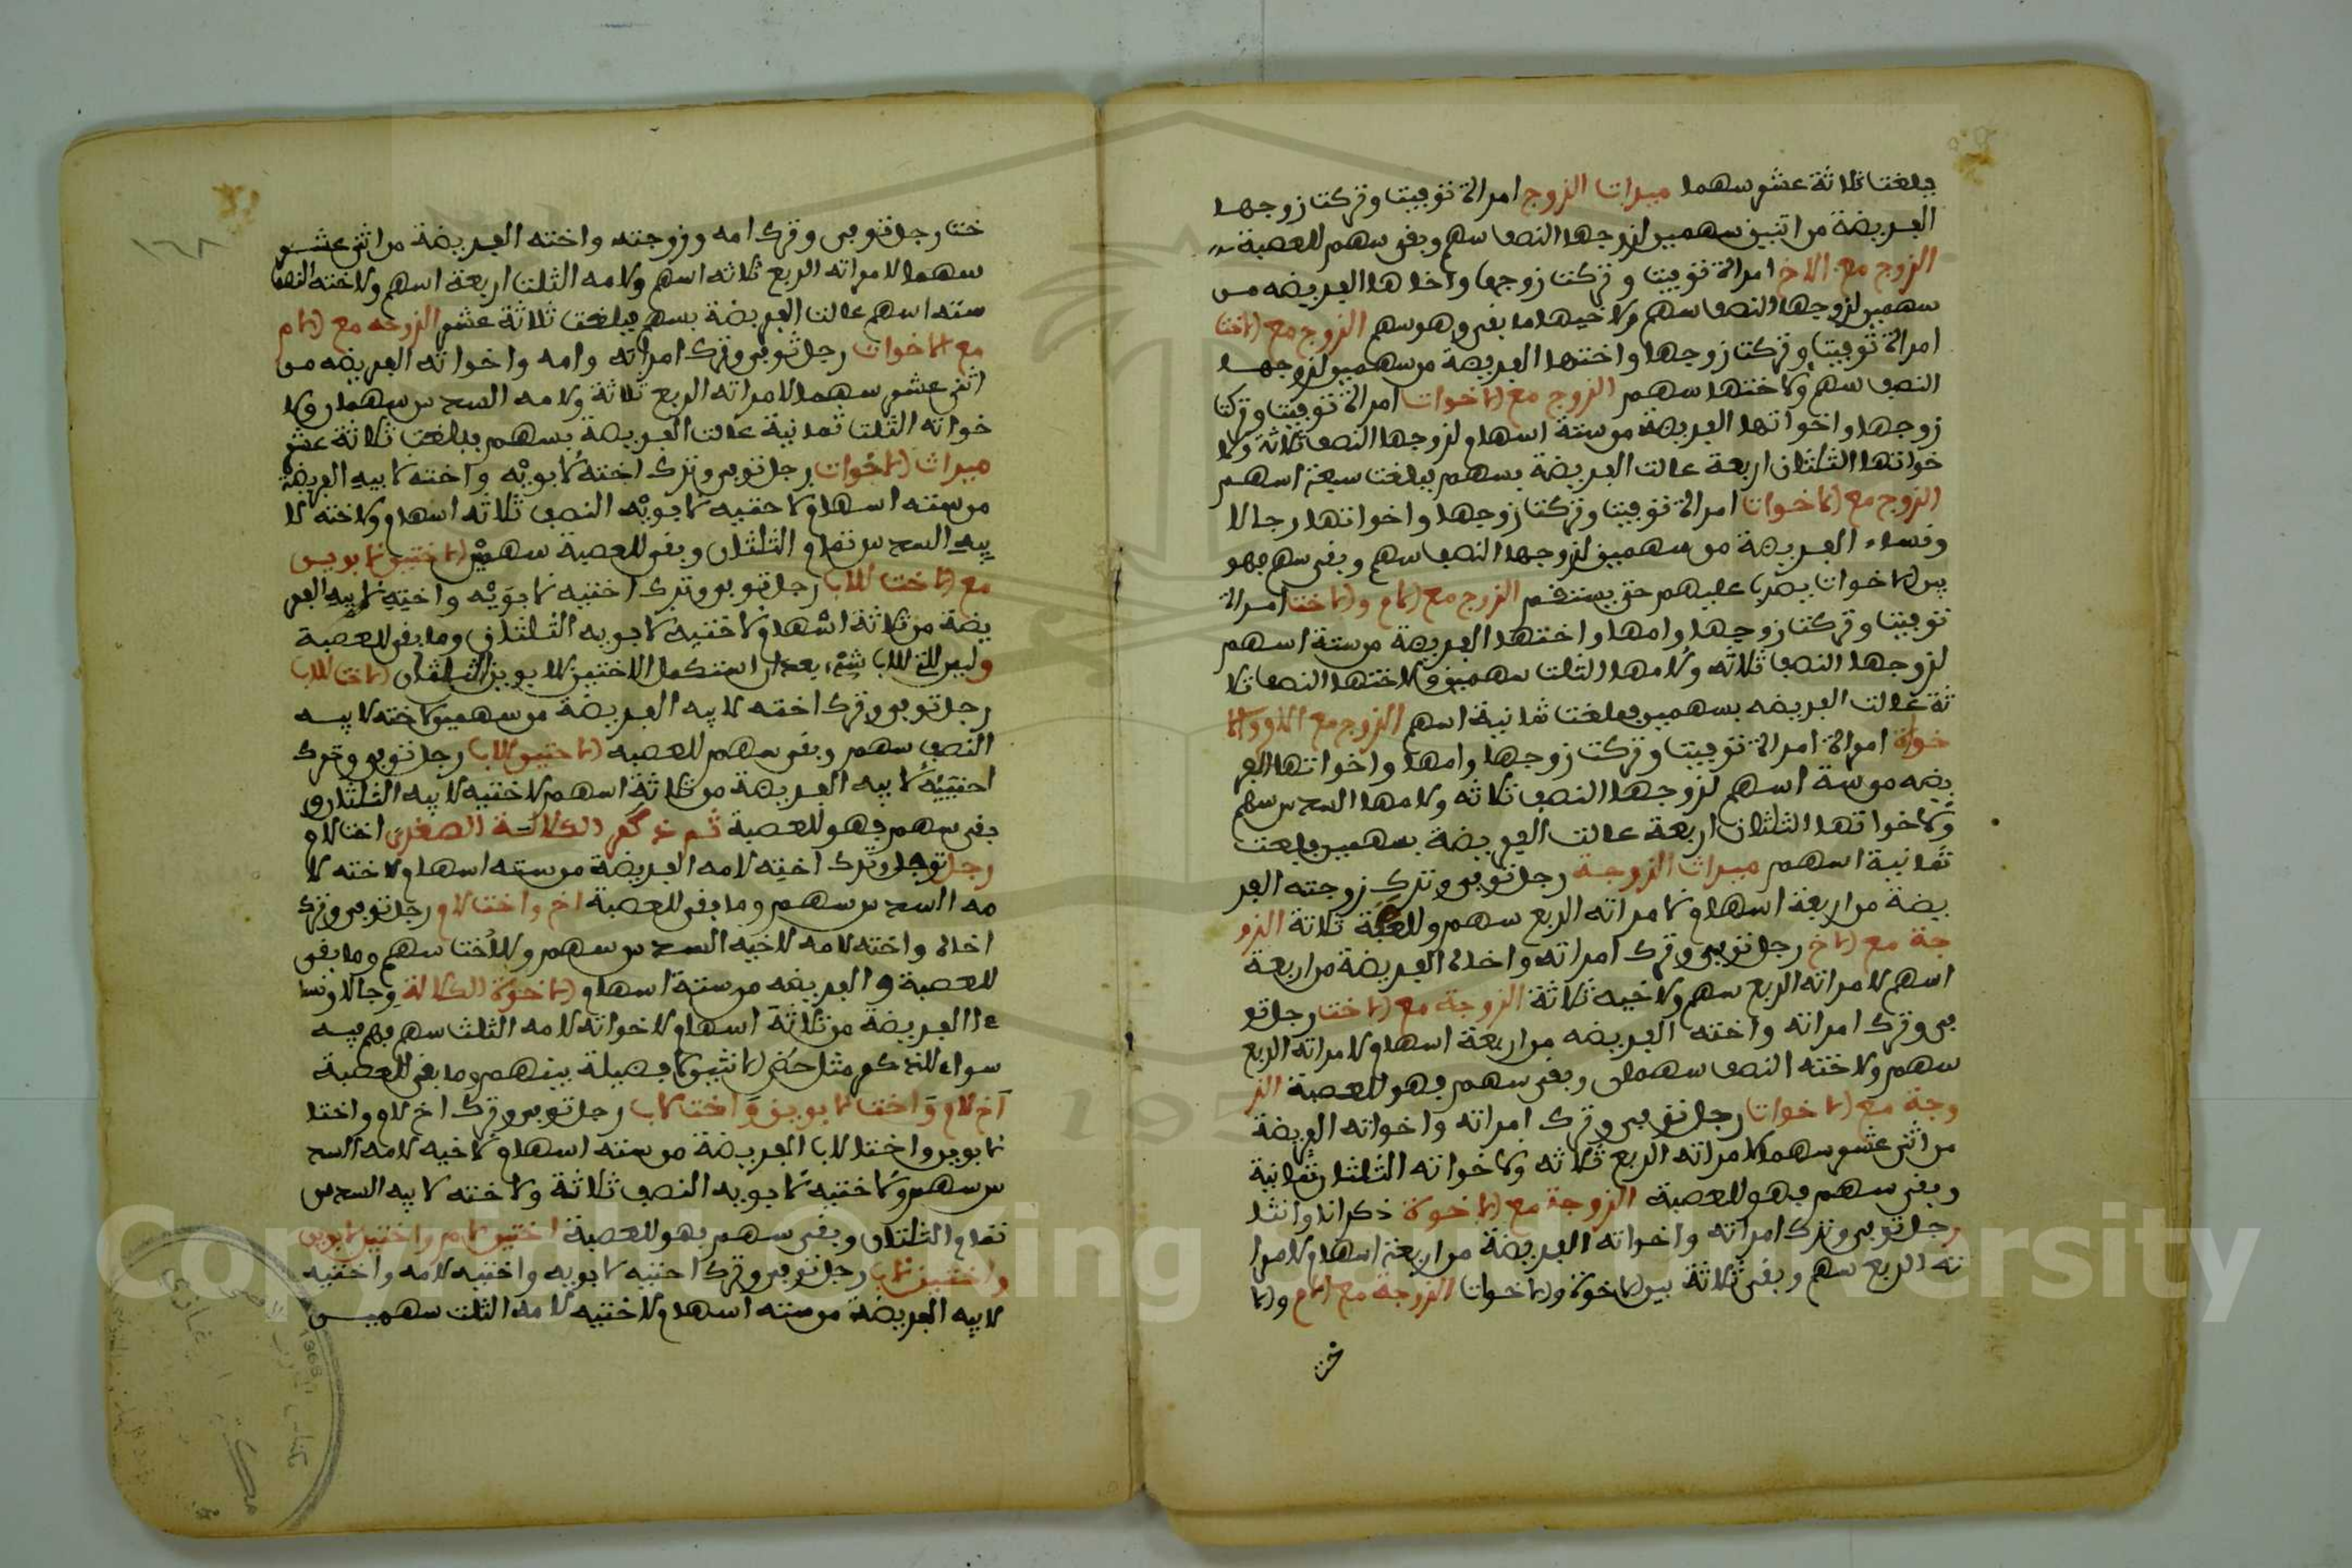 فبلغت ثلاثة عشر سهما ميراث الزوج امراة توفيت وتركت زوجها
الفريضة من اثنين سهمين لزوجها النصف سهم وبقى سهم للعصبة
الزوج مع الاخ امراة توفيت وتركت زوجها واخاها الفريضه من
سهمين لزوجها النصف سهم ولاخيها ما بقى وهو سهم الزوج مع الاخت
امراة توفيت وتركت زوجها واختها الفريضة من سهمين لزوجها
النصف سهم ولاختها سهم الزوج مع الاخوات امراة توفيت وتركت
زوجها واخواتها الفريضة من ستة اسهام لزوجها النصف ثلاثة ولا
خواتها الثلثان اربعة عالت الفريضة بسهم فبلغت سبعة اسهم
الزوج مع الاخوات امراة توفيت وتركت زوجها واخواتها رجالا
ونساء الفريضة من سهمين لزوجها النصف سهم وبقى سهم فهو
بين الاخوات يضرب عليهم حتى يستقم الزوج مع الام والاخت امراة
توفيت وتركت زوجها وامها واختها الفريضة من ستة اسهم
لزوجها النصف ثلاثه ولامها الثلث سهمين ولاختها النصف ثلا
ثة عالت الفريضه بسهمين فبلغت ثمانية اسهم الزوج مع الام والا
خواة امراة امراة توفيت وتركت زوجها وامها واخواتها الفر
يضه من ستة اسهم لزوجها النصف ثلاثه ولامها السدس سهم
ولاخواتها الثلثان اربعة عالت الفريضة بسهمين فبلغت
ثمانية اسهم ميراث الزوجة رجل توفى وترك زوجته الفر
يضة من اربعة اسهام لامراته الربع سهم وللعصبة ثلاثة الزو
جة مع الاخ رجل توفى وترك امراته واخاه الفريضة من اربعة
اسهم لامراته الربع سهم ولاخيه ثلاثة الزوجة مع الاخت رجل تو
فى وترك امراته واخته الفريضه من اربعة اسهام لامراته الربع
سهم ولاخته النصف سهمان وبقى سهم فهو للعصبة الز
وجة مع الاخوات رجل توفى وترك امراته واخواته الفريضة
من اثنى عشر سهما لامراته الربع ثلاثه ولاخواته الثلثان ثمانية
وبقى سهم فهو للعصبة الزوجة مع الاخوة ذكرانا وانثا
رجل توفى وترك امراته واخواته الفريضة من اربعة اسهام لامرا
ته الربع سهم وبقى ثلاثة بين الاخوة والاخوات الزوجة مع الام والا
خت
١٦٨
خت رجل توفى وترك امه وزوجته واخته الفريضة من اثنى عشر
سهما لامراته الربع ثلاثه اسهم ولامه الثلث اربعة اسهم ولاخته النصف
سته اسهم عالت الفريضة بسهم فبلغت ثلاثة عشر الزوجه مع الام
مع الاخوات رجل توفى وترك امراته وامه واخواته الفريضه من
اثنى عشر سهما لامراته الربع ثلاثة ولامه السدس سهمان ولا
خواته الثلث ثمانية عالت الفريضة بسهم فبلغت ثلاثة عشر
ميراث الاخوات رجل توفى وترك اخته لابويه واخته لابيه الفريضة
من سته اسهام لاختيه لابويه النصف ثلاثه اسهام ولاخته لا
بيه السدس تمام الثلثان وبقى للعصبة سهمين الاختين لابوين
مع الاخت للاب رجل توفى وترك اختيه لابويه واخته لابيه الفر
يضة من ثلاثة اسهام لاختيه لابويه الثلثان وما بقى للعصبة
وليس للتى للاب شئ بعد ان استكمل الاختين للابوين الثلثان الاخت للاب
رجل توفى وترك اخته لابيه الفريضة من سهمين لاخته لابيه
النصف سهم وبقى سهم للعصبه الاختين للاب رجل توفى وترك
اختييه لابيه الفريضة من ثلاثة اسهم لاختيه لابيه الثلثان و
بقى سهم فهو للعصبة ثم نذكر الكلالة الصغرى اخت لام
رجل توفى وترك اخته لامه الفريضة من سته اسهام لاخته لا
مه السدس سهم وما بقى للعصبة اخ واخت لام رجل توفى وترك
اخاه واخته لامه لاخيه السدس سهم وللاخت سهم وما بقى
للعصبة والفريضه من ستة اسهام الاخوة الكلالة رجالا ونسا
ءا الفريضة من ثلاثة اسهام لاخواته لامه الثلث سهم فهم فيه
سواء للذكر مثل حض الانثيين لا فصيلة بينهم وما بقى للعصبة
اخ لام واخت لابوين واخت لاب رجل توفى وترك اخ لام واختا
لابوين واختا لاب الفريضة من سته اسهام لاخيه لامه السد
س سهم ولاختيه لابويه النصف ثلاثة ولاخته لابيه السدس
تمام الثلثان وبقى سهم فهو للعصبة اختين لام واختين لابوين
واختين لاب رجل توفى وترك اختيه لابويه واختيه لامه واختيه
لابيه الفريضة من سته اسهام لاختيه لامه الثلث سهمين
Copyright © King Saud University
195